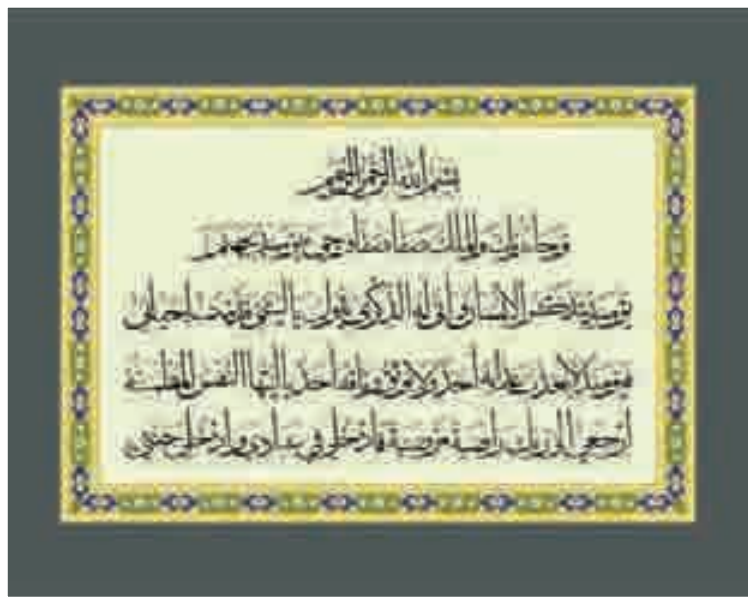 بسم الله الرحمن الرحيم
وجاء ربك والملك صفا صفا وجيء يومئذ بجهنم
يومئذ يتذكر الإنسان وأنى له الذكرى يقول يا ليتني قدمت لحياتي
فيومئذ لا يعذب عذابه أحد ولا يوثق وثاقه أحد يا أيتها النفس المطمئنة
ارجعي إلى ربك راضية مرضية فادخلي في عبادي وادخلي جنتي